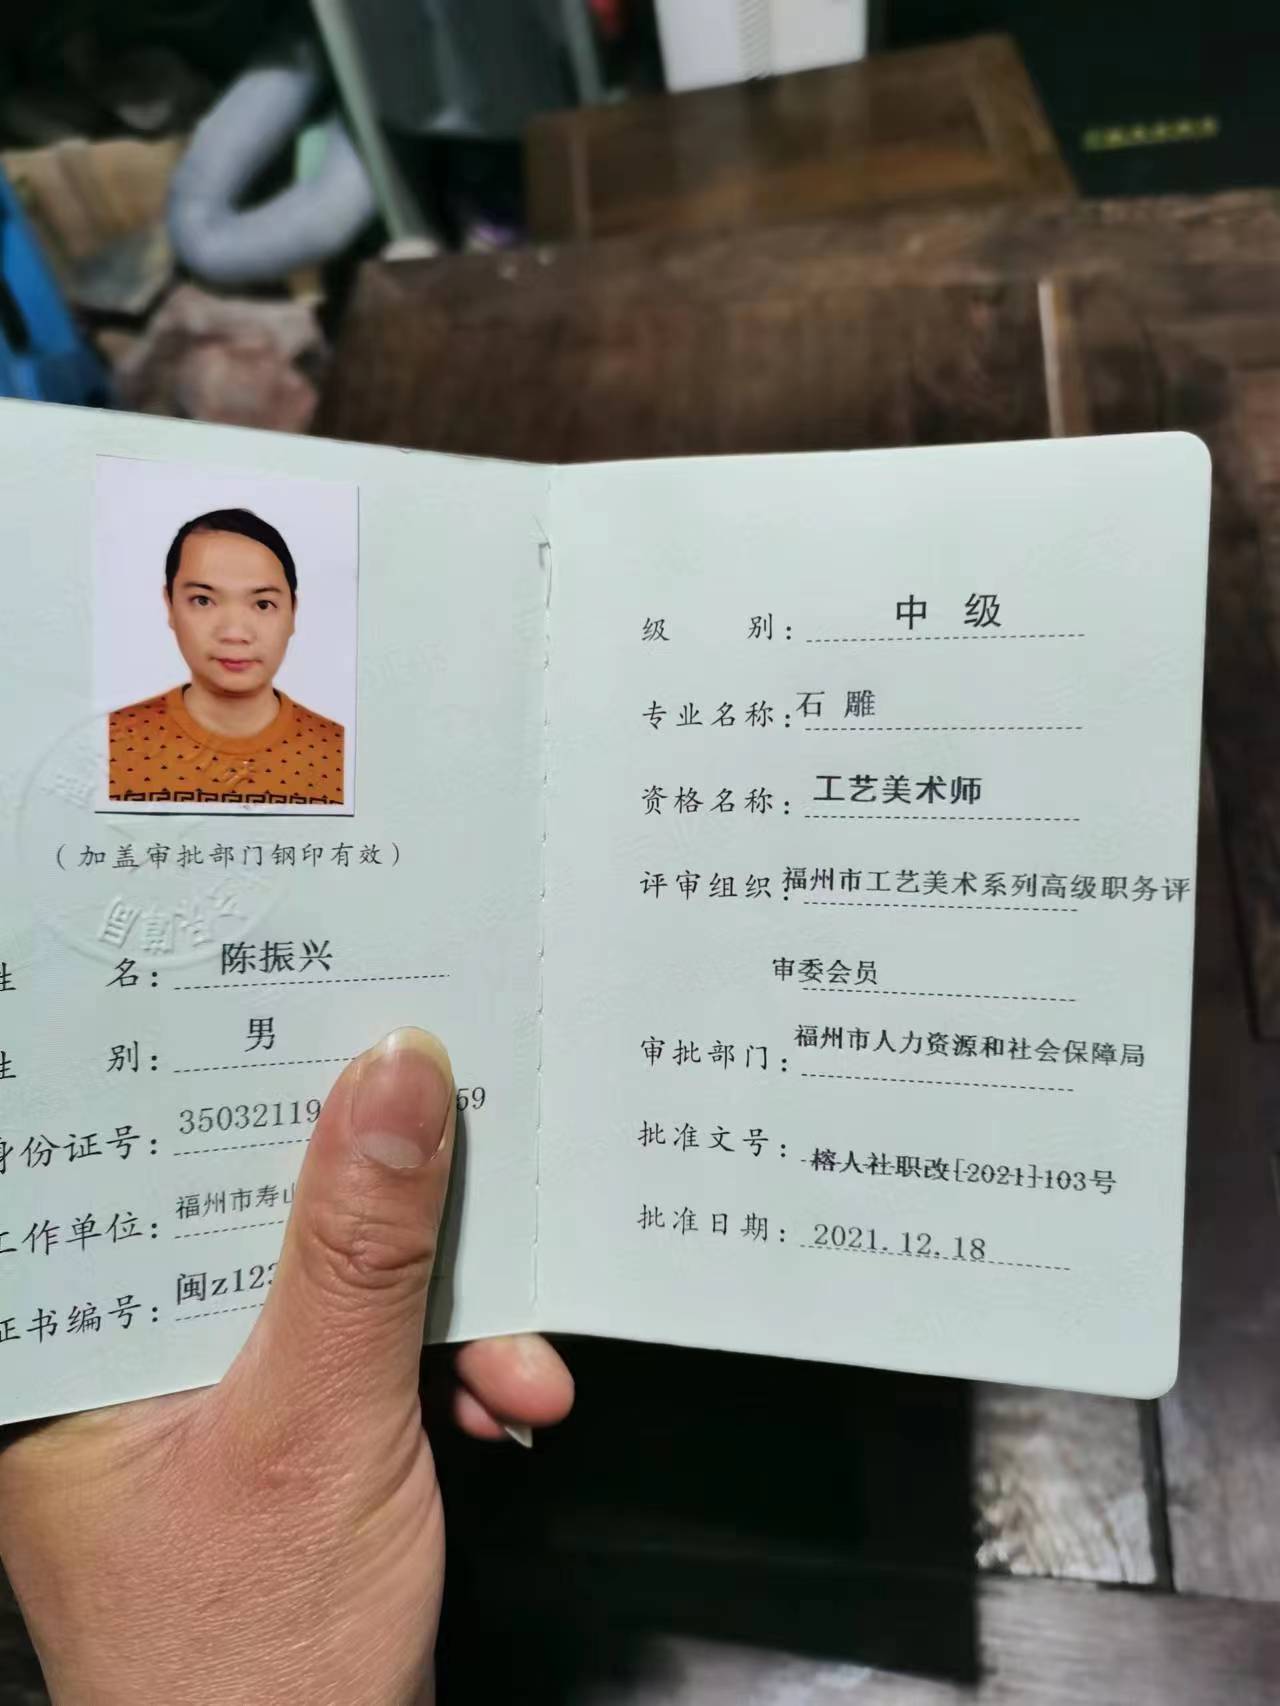 (加盖审批部门钢印有效)
姓 名: 陈振兴
性 别: 男
身份证号: 35032119 59
工作单位: 福州市寿山
证书编号: 闽z123
级 别: 中 级
专业名称: 石 雕
资格名称: 工艺美术师
评审组织: 福州市工艺美术系列高级职务评
审委会员
审批部门: 福州市人力资源和社会保障局
批准文号: 榕人社职改[2021]103号
批准日期: 2021.12.18